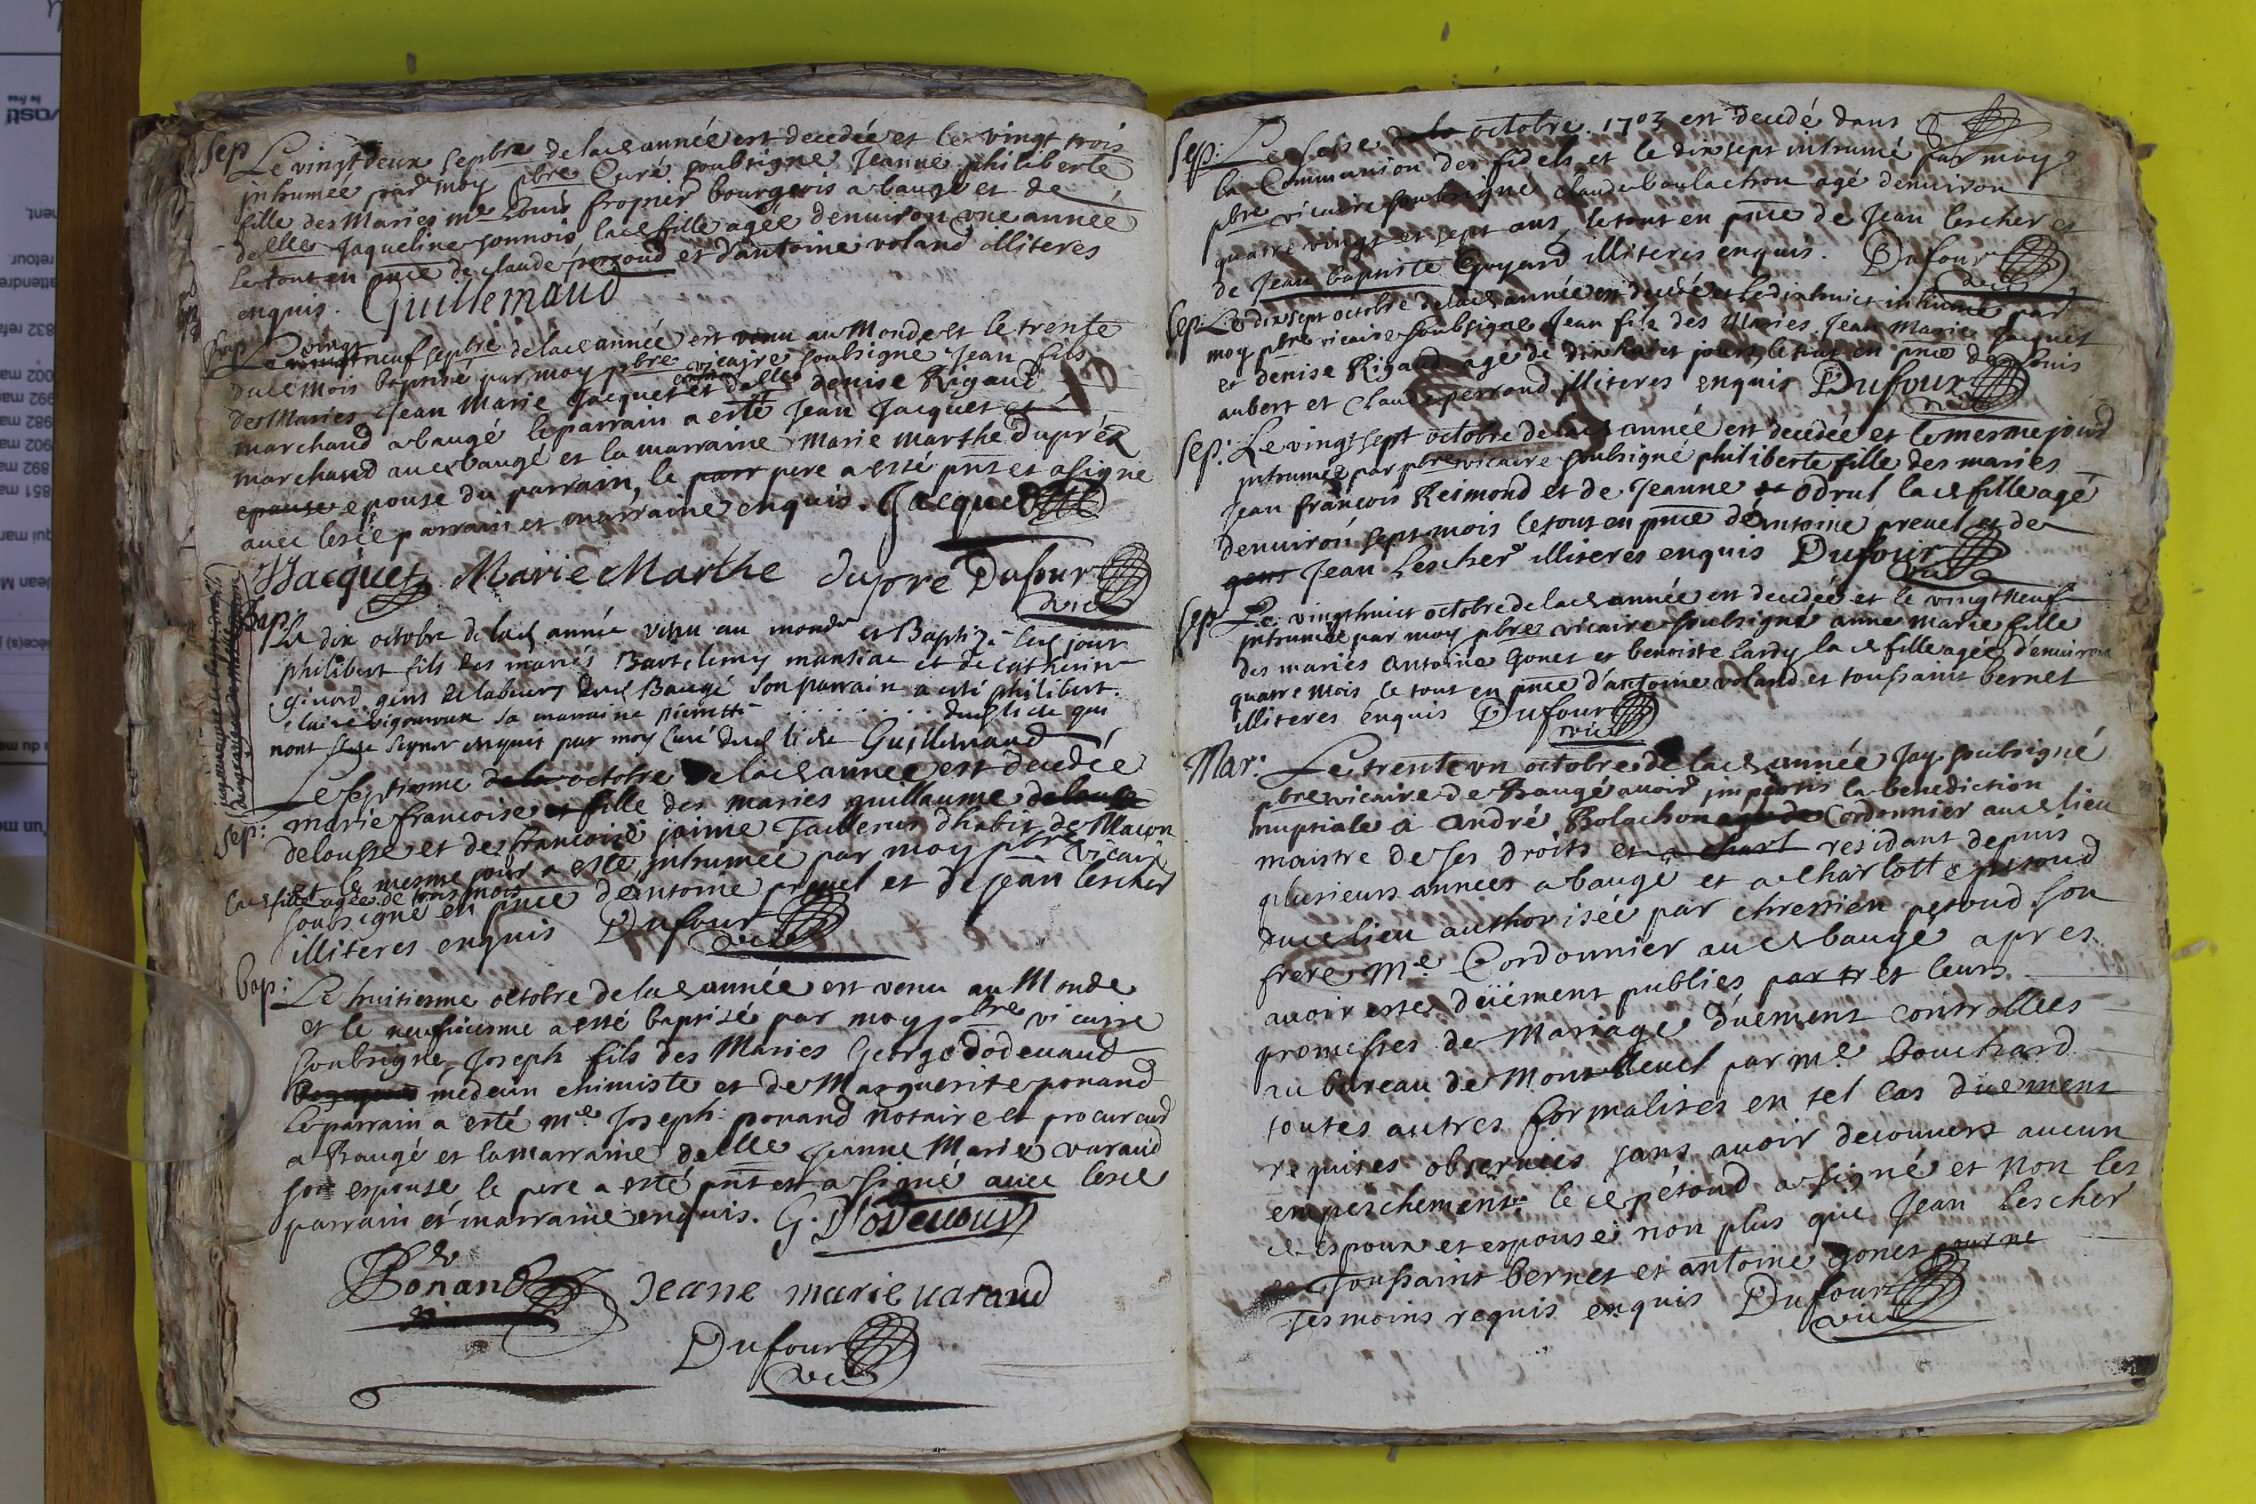 Sep Le vingt deux sepbre de lad année est decedée et le vingt trois
inhumée par moy pbre Curé soubsigné Jeanne philiberte
fille des Mariés me Louis fropier bourgeois a baugé et de
delle Jaqueline sonnois lad fille agée denuiron vne année
le tout en pnce de claude perroud et d'antoine voland illiteres
enquis. Guillemaud
Bap Le vingt neuf sepbre de lad année est venu au Monde et le trente
dud Mois baptisé par moy pbre vicaire soubsigné Jean fils
des Mariés Jean Marie Jacquet et delle denise Rigaud
marchand a baugé le parrain a esté Jean Jacquet et
marchand aud baugé et la marraine Marie Marthe Dupré
epouse epouse du parrain, le parr pere a esté pnt et a signé
auec lesd parrain et marraine enquis. Jacquet
Jacquet Marie Marthe dupre Dufour
vic
Bap: Le dix octobre de lad année venu au monde et Baptizé led jour
philibert fils des mariés Bartelemy mansiat et de Catherine
girard gens de labeurs dud Baugé son parrain a esté philibert
claire vigouroux sa marraine pierrette . . . . . . . . dud lieu qui
nont sceu signer enquis par moy Curé dud lieu Guillemaud
Sep: Le septiesme de la octobre de lad année est decedée
marie francoise et fille des maries guillaume delousse
delousse et de francoise jaime Tailleurs dhabit de Macon
et le mesme jour a esté inhumée par moy pbre vicaire
lad fille agée de trois mois
soubsigné en pnce dantoine preuel et de jean lescher
illiteres enquis Dufour
vic
bap: Le huitiesme octobre de lad année est venu au Monde
et le neufuiesme a esté baptisé par moy pbre vicaire
soubsigné Joseph fils des Maries George dodeuaud
medecin chimiste et de Marguerite ponand
le parrain a esté me Joseph ponand notaire et procureur
a Baugé et la marraine delle Jeanne Marie varaud
son espouse le pere a esté pnt et a signé auec lesd
parrain et marraine enquis. G. Dodeuaud
Ponand Jeane marie varaud
Dufour
vic
Sep: Le sese de la octobre 1703 est decedé dans
la Communion des fidels et le dix sept inhumé par moy
pbre vicaire soubsigné claude boulachon agé denuiron
quatre vingt et sept ans, le tout en pnce de Jean lescher et
de Jean baptiste Goyard illiteres enquis. Dufour
vic
Sep: Le dix sept octobre de lad année est decedé et le dixhuict inhumé par
moy pbre vicaire soubsigné Jean fils des Maries Jean Marie Jacquet
et denise Rigaud agé de dixhuict jours, le tout en pnce de Louis
aubert et Claude perroud illiteres enquis Dufour
vic
Sep: Le vingt sept octobre de lad année est decedée et le mesme jour
inhumée par pbre vicaire soubsigné philiberte fille des maries
Jean françois Reimond et de Jeanne et Odrul lad fille agé
denuiron sept mois le tout en pnce dantoine preuel et de
gens Jean Lescher illiteres enquis Dufour
vic
Sep Le vingthuict octobre de lad année est decedée et le vingtneuf
inhumée par moy pbre vicaire soubsigné anne marie fille
des maries Antoine Gonet et benoiste lardy lad fille agée d'enuiron
quatre mois le tout en pnce d'antoine voland et toussaint bernet
illiteres enquis Dufour
vic
Mar: Le trente vn octobre de lad année Jay soubsigné
pbre vicaire de Baugé auoir imparti la benediction
nuptiale a André Bolachon Cordonnier aud lieu
maistre de ses droits et a charl residant depuis
plusieurs années a baugé et a Charlotte peroud
dud lieu authorisée par chrestien peroud son
frere Me Cordonnier aud baugé apres
auoir estes düement publies par tr et leurs
promesses de Mariage düement controllees
au bureau de Montreuel par Me bouchard
toutes autres formalites en tel cas düement
requises obseruées sans auoir decouuert aucun
empeschement. le d péroud a signé et non les
d espoux et espouse non plus que Jean Lescher
Toussaint bernet et antoine gonet pour ne
Tesmoins requis enquis Dufour
vic